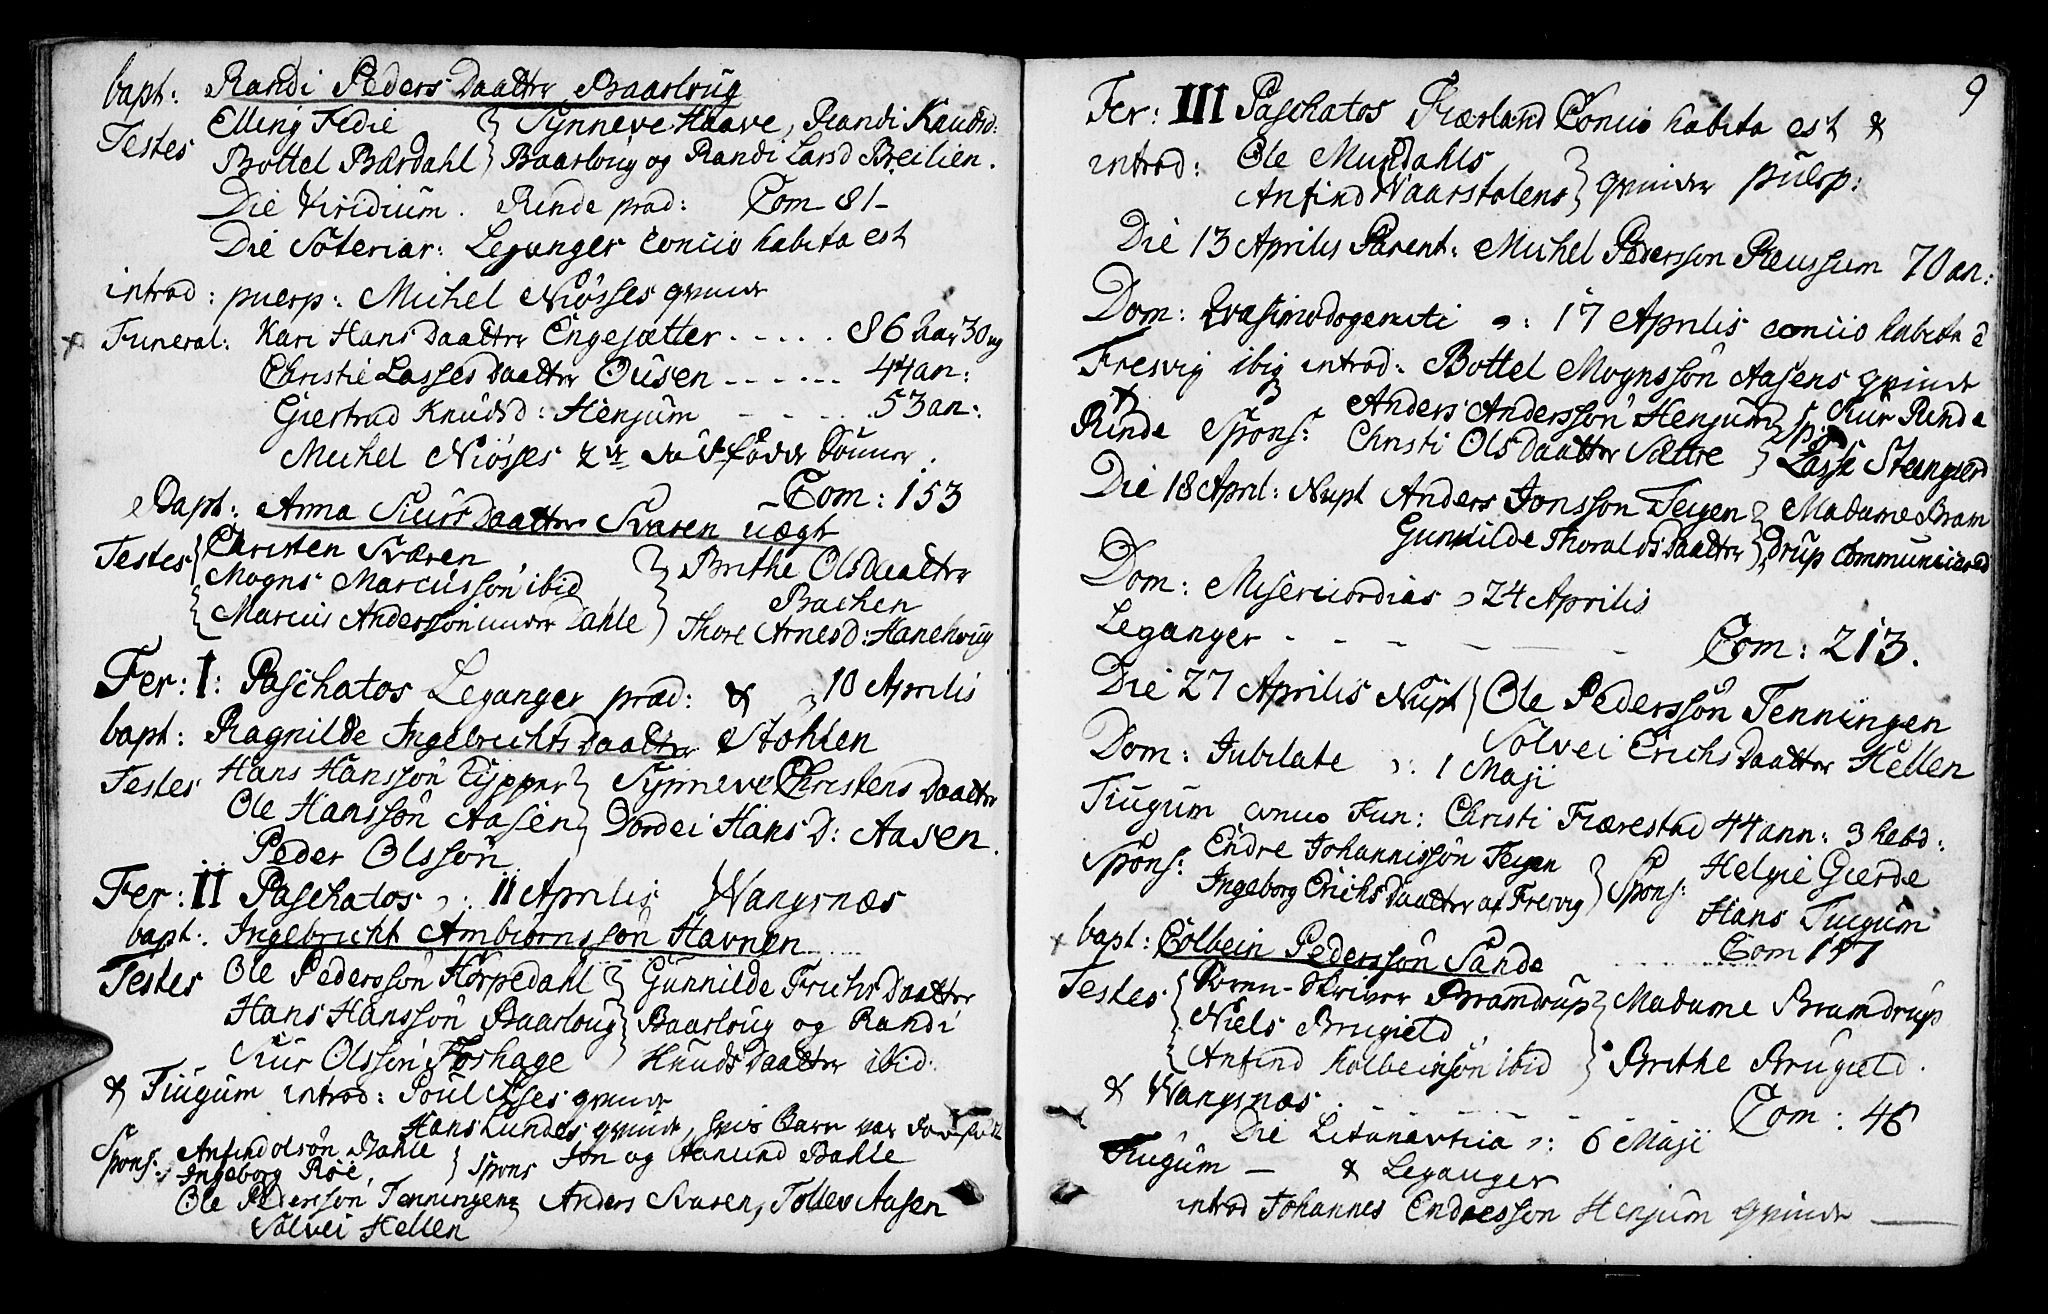 bapt: Randi Peders Daatter Baarloug
Testes Elling Fedie } Synneve Haave, Randi Knudsd:
Bottel Bærdahl } Baarloug og Randi Larsd Breilien.
Die Viridium. Rinde præd: Com 81-
Die Soteriar: Leganger concio habita est
introd: puerp: Michel Niøsses qvinde
Funeral: Kari Hans Daatter Engesætter ..... 86 Aar 30 ug
Christie Lasses Daatter Ousen ...... 44 an:
Giertrud Knudsd: Henjum ..... 53 an:
Michel Niøsses 2de dødfødde Sønner.
Com: 153
Bapt: Anna Siurs Daatter Svaren uægt
Testes { Christen Sværen } Brithe Ols Daatter
Mogns Marcussøn ibid Bachen
Marcus Anderssøn under Dahle } Thore Arnesd: Hanehoug
Fer: I: Paschatos Leganger præd: & ɔ: 10 Aprilis
bapt: Ragnilde Ingebrichts Daatter Støhlen
Testes Hans Hanssøn } Synneve Christens Daatter
Ole Hanssøn Aasen } Dordei Hans D: Aasen.
Peder Olssøn
Fer: II Paschatos ɔ: 11 Aprilis Wangsnæs
bapt: Ingebricht Ambiørnssøn Havnen
Testes Ole Pederssøn Hørpedahl } Gunnilde Erichs Daatter
Hans Hanssøn Baarloug } Baarloug og Randi
Siur Olssøn Foshage Knuds Daatter ibid:
& Tiugum introd: Poul qvinde
Hans Lundes qvinde, hvis Barn var
Spons: Anfind Olsøn Dahle } spons Jon og Aamund Dahle
Ingeborg Røe,
Ole Pederssøn Tenningen } Anders Svaren, Tollev Aasen
Sølvei Hellen
9
Fer: III Paschatos Fiærland Concio habita est &
introd: Ole Mundahls } qvinder puerp:
Anfind Vaarstølens
Die 13 Aprilis Parent: Michel Pederssøn Reussum 70 an:
Dom: Qvasimodogeniti ɔ: 17 Aprilis concio habita e
Fresvig ibiq introd: Bottel Mognssøn Aasens qvinde
Rinde Spons: Anders Anderssøn Henjum } sp: Siur Rinde
Christi Ols Daatter Sættre } Lasse Steengierd
Die 18 April: Nupt Anders Jonssøn Teigen } Madame Bram
Gunnilde Thoralds Daatter } drup communicered
Dom: Misericordias ɔ 24 Aprilis
Leganger - - - - - Com: 213.
Die 27 Aprilis Nupt { Ole Pederssøn Tenningen
Sølvei Erichs Daatter Hellen
Dom: Jubilate ɔ: 1 Maji
Tiugum concio Fun: Christi Fiærestad 44 ann: 3 hebd:
Spons: Endre Johannissøn Teigen } Spons: Helgie Gierde
Ingeborg Erichs Daatter af Fresvig } Hans Tiugum
Com 147
bapt: Colbein Pederssøn Sande
Testes { Soren-Skriver Bramdrup } Madame Bramdrup
Niels Brugield
Anfind Kolbeinsøn ibid } Brithe Brugield.
& Wangsnæs . - - - - - Com: 46
Die Litaneutica ɔ: 6 Maji
Tiugum - & Leganger
introd Johannes Endressøn Henjum qvinde